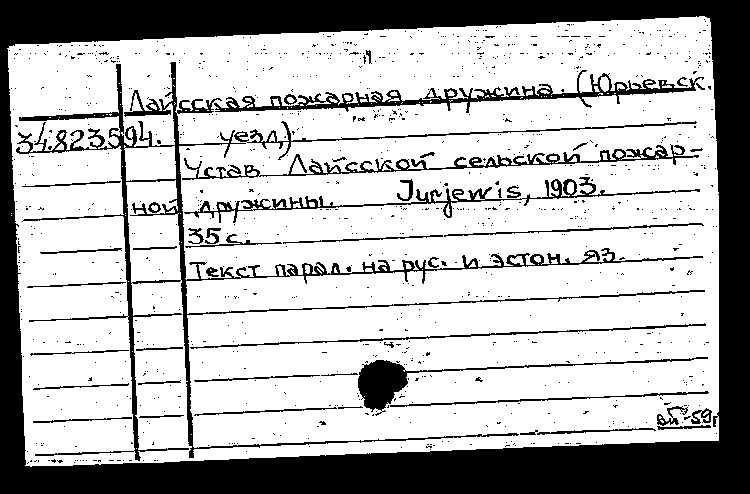 Лайсская пожарная дружина. (Юрьевск.
34.823594. уезд).
Устав Лайсской сельской пожар-
ной дружины. Jurjewis, 1903.
35 с.
Текст парал. на рус. и эстон. яз.